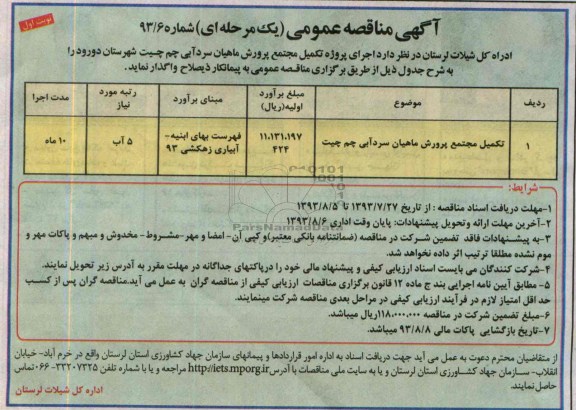 نوبت اول
آگهی مناقصه عمومی (یک مرحله ای) شماره ۹۳/۶
ادراه کل شیلات لرستان در نظر دارد اجرای پروژه تکمیل مجتمع پرورش ماهیان سردآبی چم چیت شهرستان دورود را
به شرح جدول ذیل از طریق برگزاری مناقصه عمومی به پیمانکار ذیصلاح واگذار نماید.
ردیف موضوع مبلغ برآورد اولیه(ریال) مبنای برآورد رتبه مورد نیاز مدت اجرا
۱ تکمیل مجتمع پرورش ماهیان سردآبی چم چیت ۱۱،۱۳۱،۱۹۷ ۴۲۴ فهرست بهای ابنیه- آبیاری زهکشی ۹۳ ۵ آب ۱۰ ماه
شرایط:
۱-مهلت دریافت اسناد مناقصه : از تاریخ ۱۳۹۳/۷/۲۷ تا ۱۳۹۳/۸/۵
۲-آخرین مهلت ارائه وتحویل پیشنهادات: پایان وقت اداری ۱۳۹۳/۸/۶
۳-به پیشنهادات فاقد تضمین شرکت در مناقصه (ضمانتنامه بانکی معتبر)و کپی آن- امضا و مهر-مشروط- مخدوش و مبهم و پاکات مهر و
موم نشده مطلقا ترتیب اثر داده نخواهد شد.
۴-شرکت کنندگان می بایست اسناد ارزیابی کیفی و پیشنهاد مالی خود را درپاکتهای جداگانه در مهلت مقرر به آدرس زیر تحویل نمایند.
۵- مطابق آیین نامه اجرایی بند ج ماده ۱۲ قانون برگزاری مناقصات ارزیابی کیفی از مناقصه گران به عمل می آید.مناقصه گران پس از کسب
حد اقل امتیاز لازم در فرآیند ارزیابی کیفی در مراحل بعدی مناقصه شرکت مینمایند.
۶-مبلغ تضمین شرکت در مناقصه ۱۱۸،۰۰۰،۰۰۰ریال میباشد.
۷-تاریخ بازگشایی پاکات مالی ۹۳/۸/۸ میباشد.
ParsNamadData
از متقاضیان محترم دعوت به عمل می آید جهت دریافت اسناد به اداره امور قراردادها و پیمانهای سازمان جهاد کشاورزی استان لرستان واقع در خرم آباد- خیابان
انقلاب- سازمان جهاد کشاورزی استان لرستان و یا به سایت ملی مناقصات با آدرس http://iets.mporg.ir مراجعه و یا با شماره تلفن ۳۳۲۰۷۳۲۵-۰۶۶ تماس
حاصل نمایند.
اداره کل شیلات لرستان